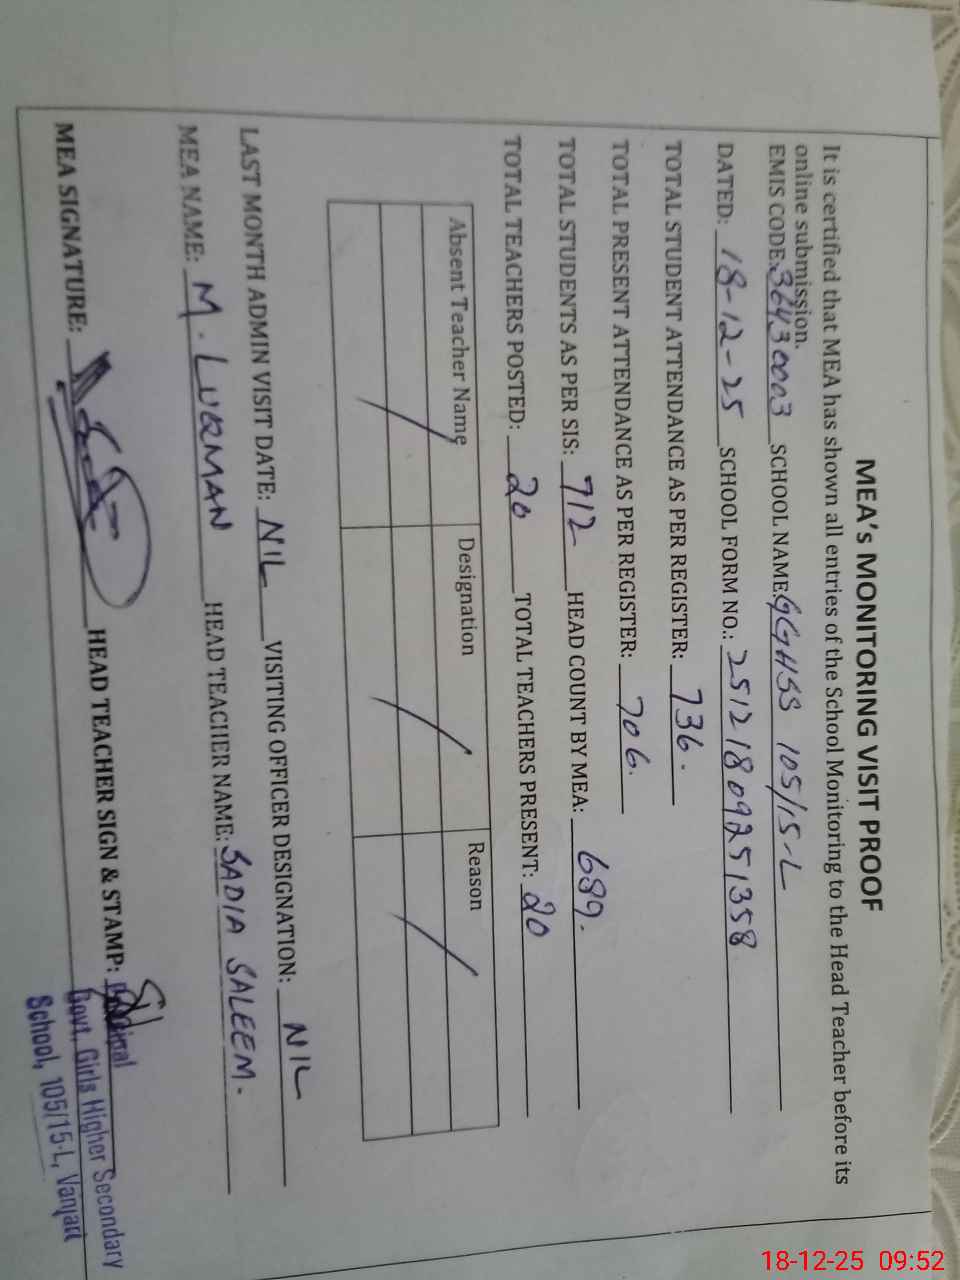 MEA's MONITORING VISIT PROOF
It is certified that MEA has shown all entries of the School Monitoring to the Head Teacher before its
online submission.
EMIS CODE: 36430003 SCHOOL NAME: GGHSS 105/15-L
DATED: 18-12-25 SCHOOL FORM NO.: 25121809251358
TOTAL STUDENT ATTENDANCE AS PER REGISTER: 736.
TOTAL PRESENT ATTENDANCE AS PER REGISTER: 706.
TOTAL STUDENTS AS PER SIS: 712 HEAD COUNT BY MEA: 689.
TOTAL TEACHERS POSTED: 20 TOTAL TEACHERS PRESENT: 20
Absent Teacher Name Designation Reason
LAST MONTH ADMIN VISIT DATE: NIL VISITING OFFICER DESIGNATION: NIL
MEA NAME: M. LUQMAN HEAD TEACHER NAME: SADIA SALEEM.
MEA SIGNATURE: HEAD TEACHER SIGN & STAMP:
Principal
Govt. Girls Higher Secondary
School, 105/15-L,
18-12-25 09:52